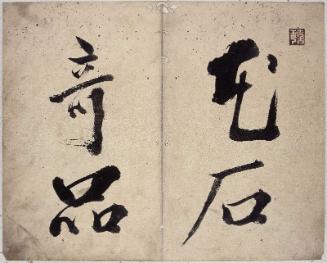 花石
奇品